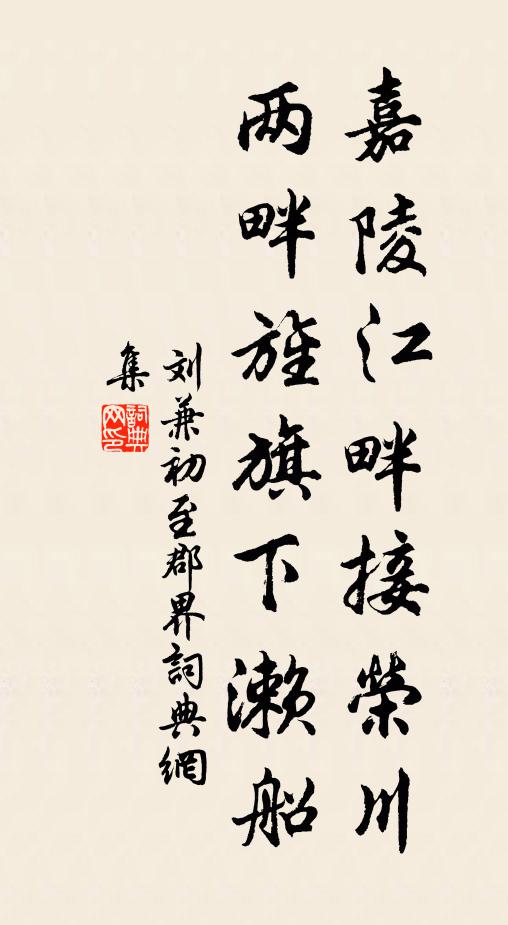 嘉陵江畔接榮川
两畔旌旗下濑船
刘兼初至郡界詞典網
集
詞典
网印